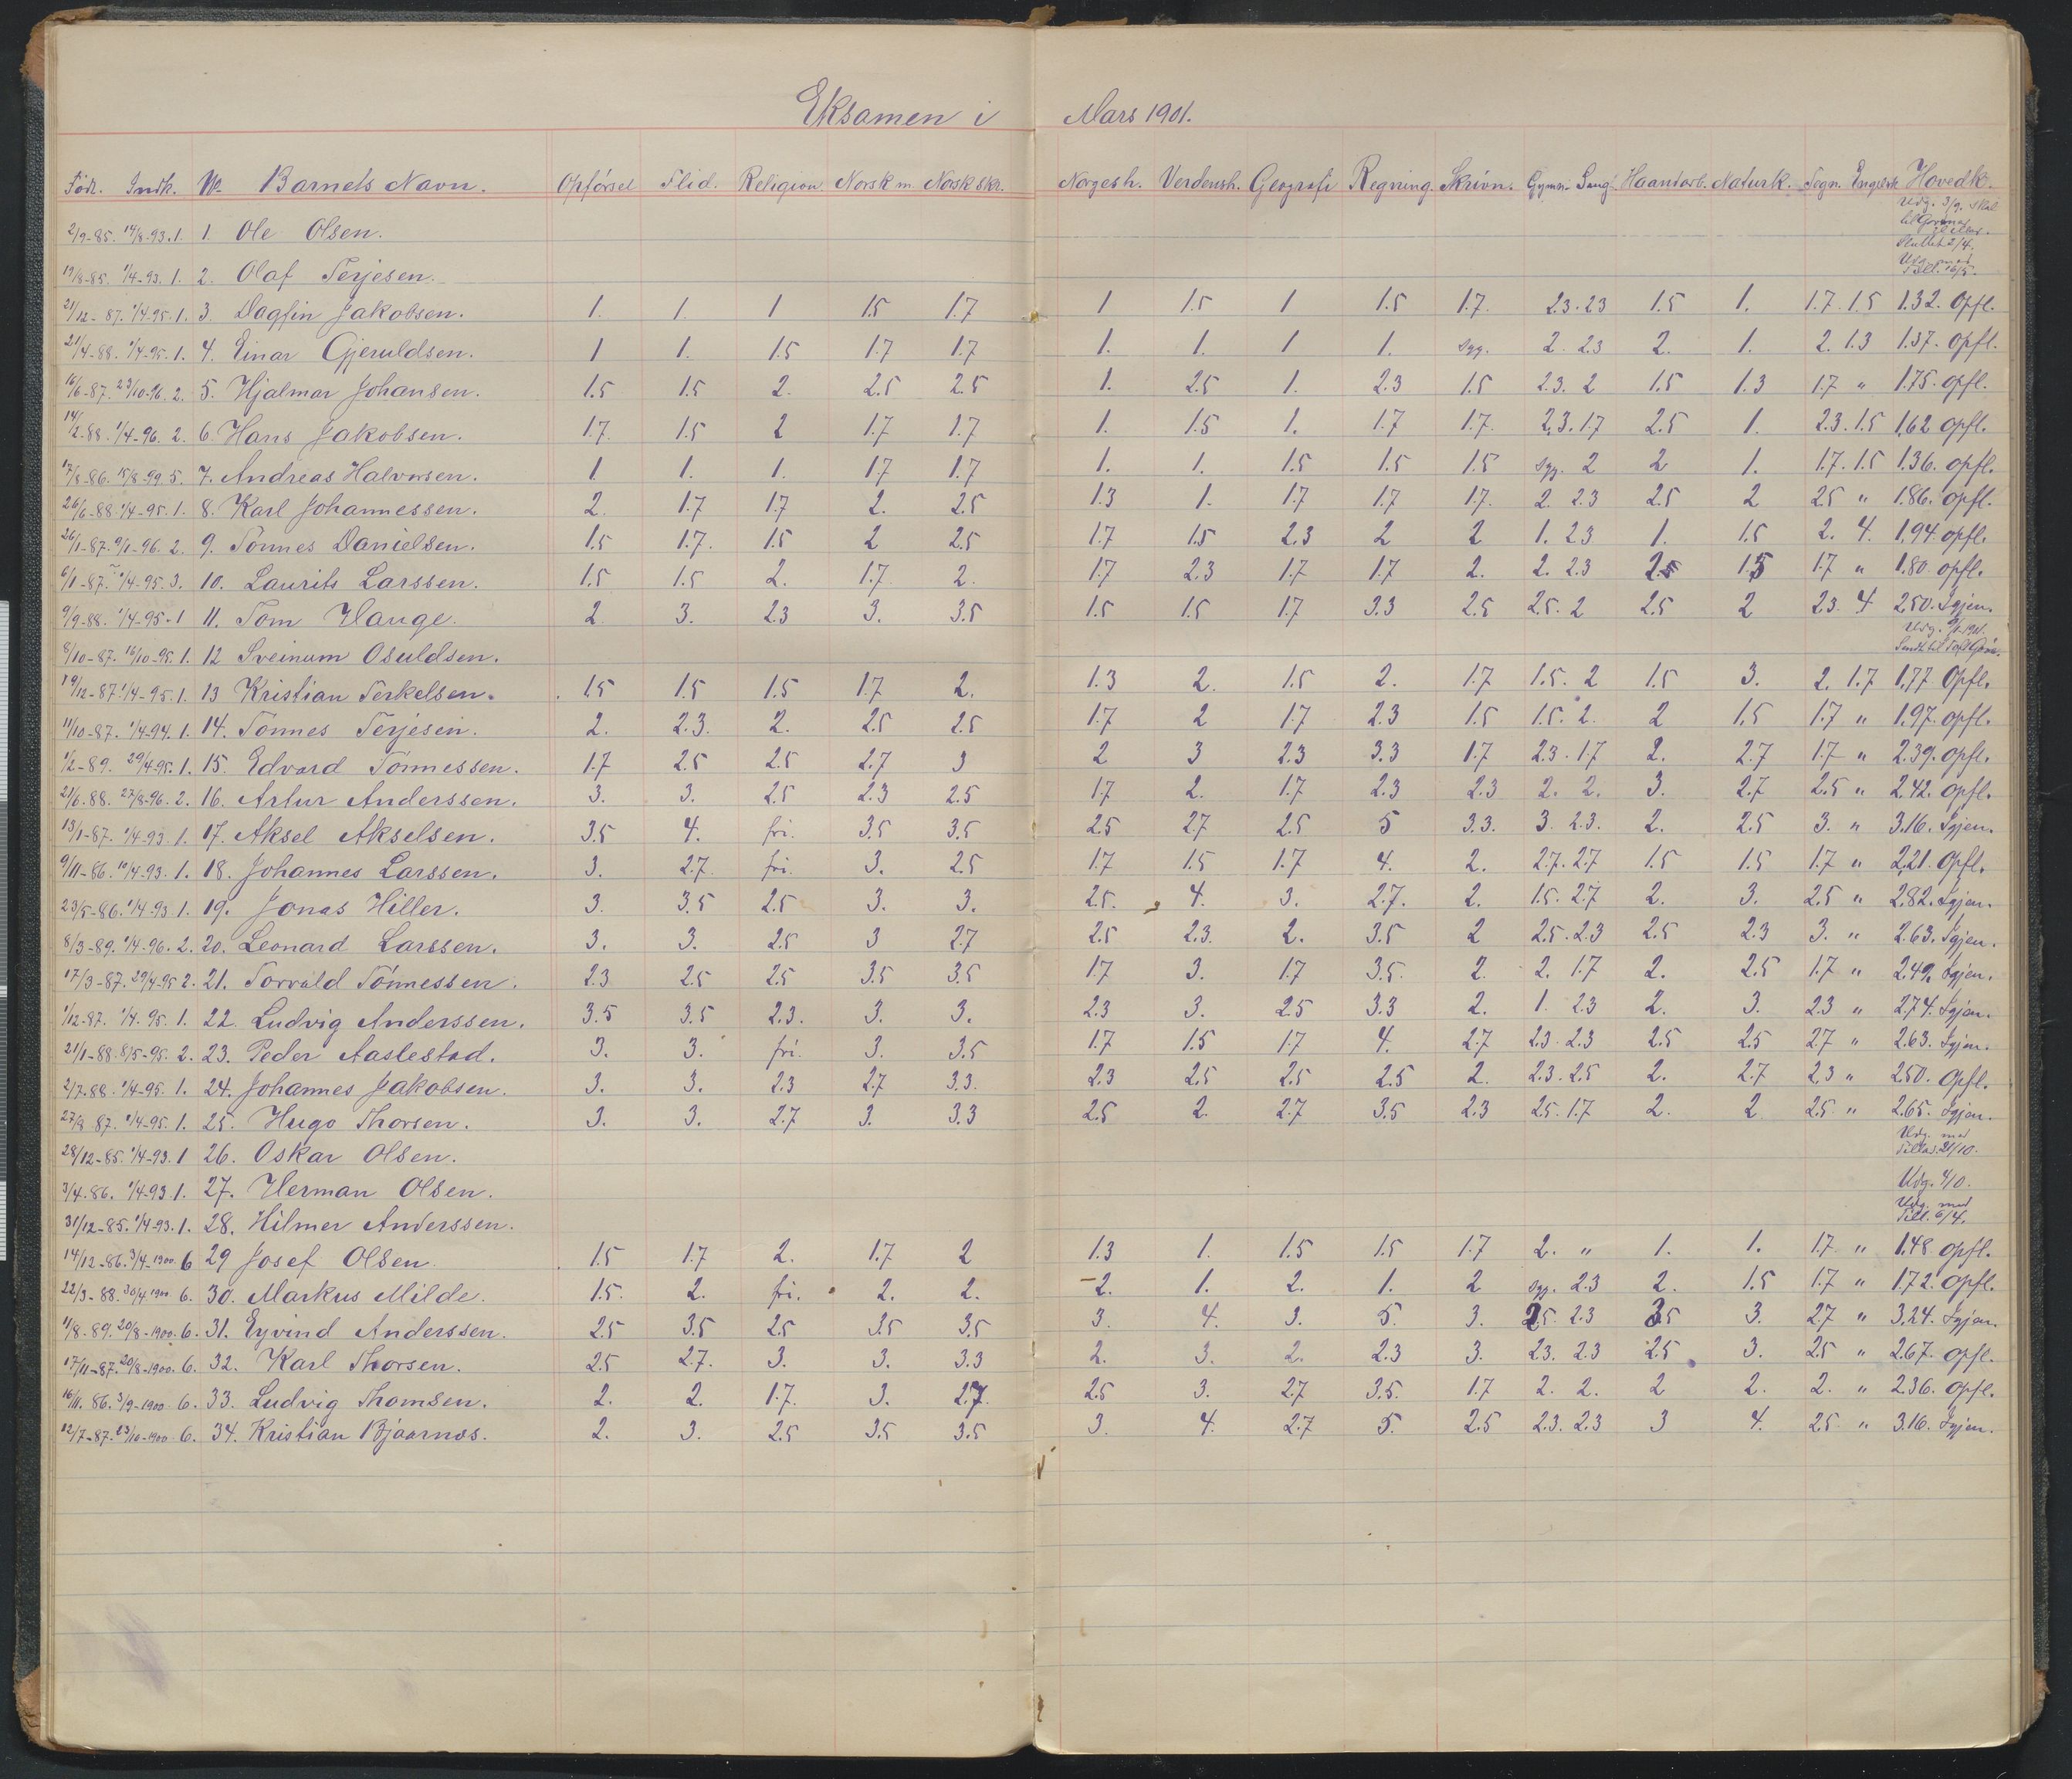 Eksamen i Mars 1901.
Född. Indk. No Barnets Navn. Opförsel Flid. Religion Norsk m. Norsk skr. Norgesh. Verdensh. Geografi Regning. Skrivn. Gymn. Sang. Haandarb. Naturk. Tegn. Engelsk Hovedk.
2/9-85. 14/8-93. 1. 1. Ole Olsen. Udg. 3/9. skal til Sluttet 2/4.
19/8-85. 1/4-93. 1. 2. Olaf Terjesen. Udg. med Till. 16/5.
21/12-87. 1/4-95. 1. 3. Dagfin Jakobsen. 1. 1. 1 1.5 1.7 1 1.5 1 1.5 1.7. 2.3. 2.3 1.5 1. 1.7. 1.5 1.32. Opfl.
21/4-88. 1/4-95. 1. 4. Einar Gjeruldsen. 1 1. 1.5 1.7 1.7 1. 1. 1 1. syg. 2. 2.3 2. 1. 2. 1.3 1.37. opfl.
16/6-87. 23/10-96. 2. 5. Hjalmar Johansen. 1.5 1.5 2. 2.5 2.5 1. 2.5 1. 2.3 1.5 2.3. 2 1.5 1.3 1.7 " 1.75. opfl.
14/2-88. 1/4-96. 2. 6. Hans Jakobsen. 1.7. 1.5 2 1.7 1.7 1. 1.5 1. 1.7 1.7. 2.3. 1.7 2.5 1. 2.3. 1.5 1.62 opfl.
17/8-86. 15/8-99. 5. 7. Andreas Halvorsen. 1 1. 1. 1.7 1.7 1. 1. 1.5 1.5 1.5 syg. 2 2 1. 1.7. 1.5 1.36. opfl.
26/6-88. 1/4-95. 1. 8. Karl Johannessen. 2. 1.7 1.7 2. 2.5 1.3 1. 1.7 1.7 1.7. 2. 2.3 2.5 2 2.5 " 1.86. opfl.
26/1-87. 9/1-96. 2. 9. Tönnes Danielsen. 1.5 1.7. 1.5 2 2.5 1.7 1.5 2.3 2 2 1. 2.3 1. 1.5 2. 4. 1.94. opfl.
6/1-87. 1/4-95. 3. 10. Laurits Larssen. 1.5 1.5 2. 1.7 2. 1.7 2.3 1.7 1.7 2. 2. 2.3 2.5 1.5 1.7 " 1.80. opfl.
9/9-88. 1/4-95. 1 11. Tom Hauge. 2 3. 2.3 3. 3.5 1.5 1.5 1.7 3.3 2.5 2.5. 2 2.5 2 2.3. 4 2.50. Igjen.
8/10-87. 16/10-95. 1. 12 Sveinum Osuldsen. Udg. 1901. Sendt til
19/12-87. 1/4-95. 1. 13 Kristian Terkelsen. 1.5 1.5 1.5 1.7 2. 1.3 2. 1.5 2. 1.7 1.5. 2 1.5 3. 2. 1.7 1.77 Opfl.
11/10-87. 1/4-94. 1. 14. Tönnes Terjesen. 2. 2.3. 2. 2.5 2.5 1.7 2 1.7 2.3 1.5 1.5. 2. 2 1.5 1.7 " 1.97. opfl.
1/2-89. 29/4-95. 1. 15. Edvard Tönnessen. 1.7 2.5 2.5 2.7 3 2 3 2.3 3.3 1.7 2.3. 1.7 2. 2.7 1.7 " 2.39. opfl.
2/6.88. 27/8-96. 2. 16. Artur Anderssen. 3. 3. 2.5 2.3 2.5 1.7 2. 1.7 2.3 2.3 2. 2. 3. 2.7 2.5 " 2.42. opfl.
13/1-87. 1/4-93. 1. 17. Aksel Akselsen. 3.5 4. fri. 3.5 3.5 2.5 2.7 2.5 5 3.3. 3. 2.3. 2. 2.5 3. " 3.16. Igjen.
9/11-86. 10/4-93. 1. 18. Johannes Larssen. 3. 2.7. fri. 3. 2.5 1.7 1.5 1.7 4. 2. 2.7. 2.7 1.5 1.5 1.7 " 2.21. Opfl.
23/5-86. 1/4-93 1. 19. Jonas Hiller. 3. 3.5 2.5 3. 3. 2.5. 4. 3. 2.7. 2. 1.5. 2.7 2. 3. 2.5 " 2.82. Igjen.
8/3-89. 1/4-96. 2. 20. Leonard Larssen. 3. 3. 2.5 3 2.7 2.5 2.3. 2. 3.5 2 2.5. 2.3 2.5 2.3 3. " 2.63. Igjen.
17/3-87. 29/4-95 2. 21. Torvald Tönnessen. 2.3 2.5 2.5 3.5 3.5 1.7 3. 1.7 3.5. 2. 2. 1.7 2. 2.5 1.7 " 2.49. Igjen.
1/12-87. 1/4. 95. 1. 22. Ludvig Anderssen. 3.5 3.5 2.3. 3. 3. 2.3 3. 2.5 3.3 2. 1. 2.3 2. 3. 2.3 " 2.74. Igjen.
21/1-88. 8/5-95. 2. 23. Peder Aaslestad. 3. 3. fri. 3. 3.5 1.7 1.5 1.7 4. 2.7 2.3. 2.3 2.5 2.5 2.7 " 2.63. Igjen.
2/7.88. 1/4-95. 1. 24. Johannes Jakobsen. 3. 3. 2.3 2.7 3.3. 2.3 2.5 2.5 2.5 2. 2.3. 2.5 2. 2.7 2.3 " 2.50. opfl.
27/8 87. 1/4-95. 1. 25. Hugo Thorsen. 3. 3. 2.7 3. 3.3 2.5 2. 2.7 3.5 2.3 2.5. 1.7 2. 2 2.5 " 2.65. Igjen.
28/12-85. 1/4-93. 1 26. Oskar Olsen. Udg. med Tillad. 21/10.
3/4.86. 1/4-93. 1. 27. Herman Olsen. Udg. 4/10.
31/12-85. 1/4-93. 1. 28. Hilmer Anderssen. Udg. med Till. 6/4.
14/12-86. 3/4-1900. 6 29 Josef Olsen 1.5 1.7 2. 1.7 2 1.3 1. 1.5 1.5 1.7 2. " 1. 1. 1.7 " 1.48 opfl.
22/3-88. 30/4 1900 6. 30. Markus Milde. 1.5. 2. fri. 2. 2. 2. 1. 2. 1. 2 syg. 2.3 2. 1.5 1.7 " 1.72. opfl.
11/8-89. 20/8-1900. 6. 31. Eyvind Anderssen. 2.5 3.5 2.5 3.5 3.5 3. 4. 3. 5. 3. 2.5. 2.3 3.5 3. 2.7 " 3.24. Igjen.
17/11-87. 20/8-1900. 6. 32. Karl Thorsen. 2.5 2.7. 3. 3. 3.3 2. 3. 2. 2.3 3. 2.3. 2.3 2.5 3. 2.5 " 2.67. opfl.
16/11. 86. 3/9-1900. 6. 33. Ludvig Thomsen. 2. 2. 1.7. 3. 2.7. 2.5 3. 2.7 3.5. 1.7 2. 2. 2 2. 2. " 2.36. opfl.
12/7-87. 23/10-1900 6. 34. Kristian Bjaarnos. 2. 3. 2.5 3.5 3.5 3. 4. 2.7 5. 2.5 2.3. 2.3 3 4. 2.5 " 3.16. Igjen.